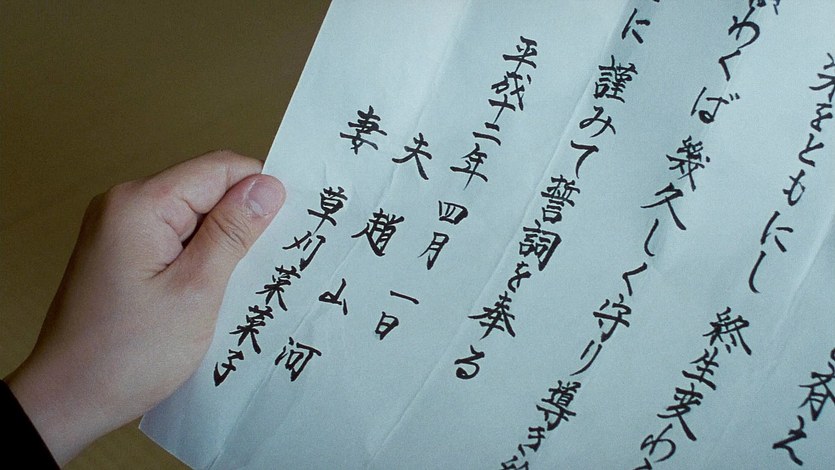 え
をともにし 終生変わ
わくば 幾久しく守り導き
に 謹みて誓詞を奉る
平成十二年 四月 一日
夫 趙 山 河
妻 草刈菜菜子